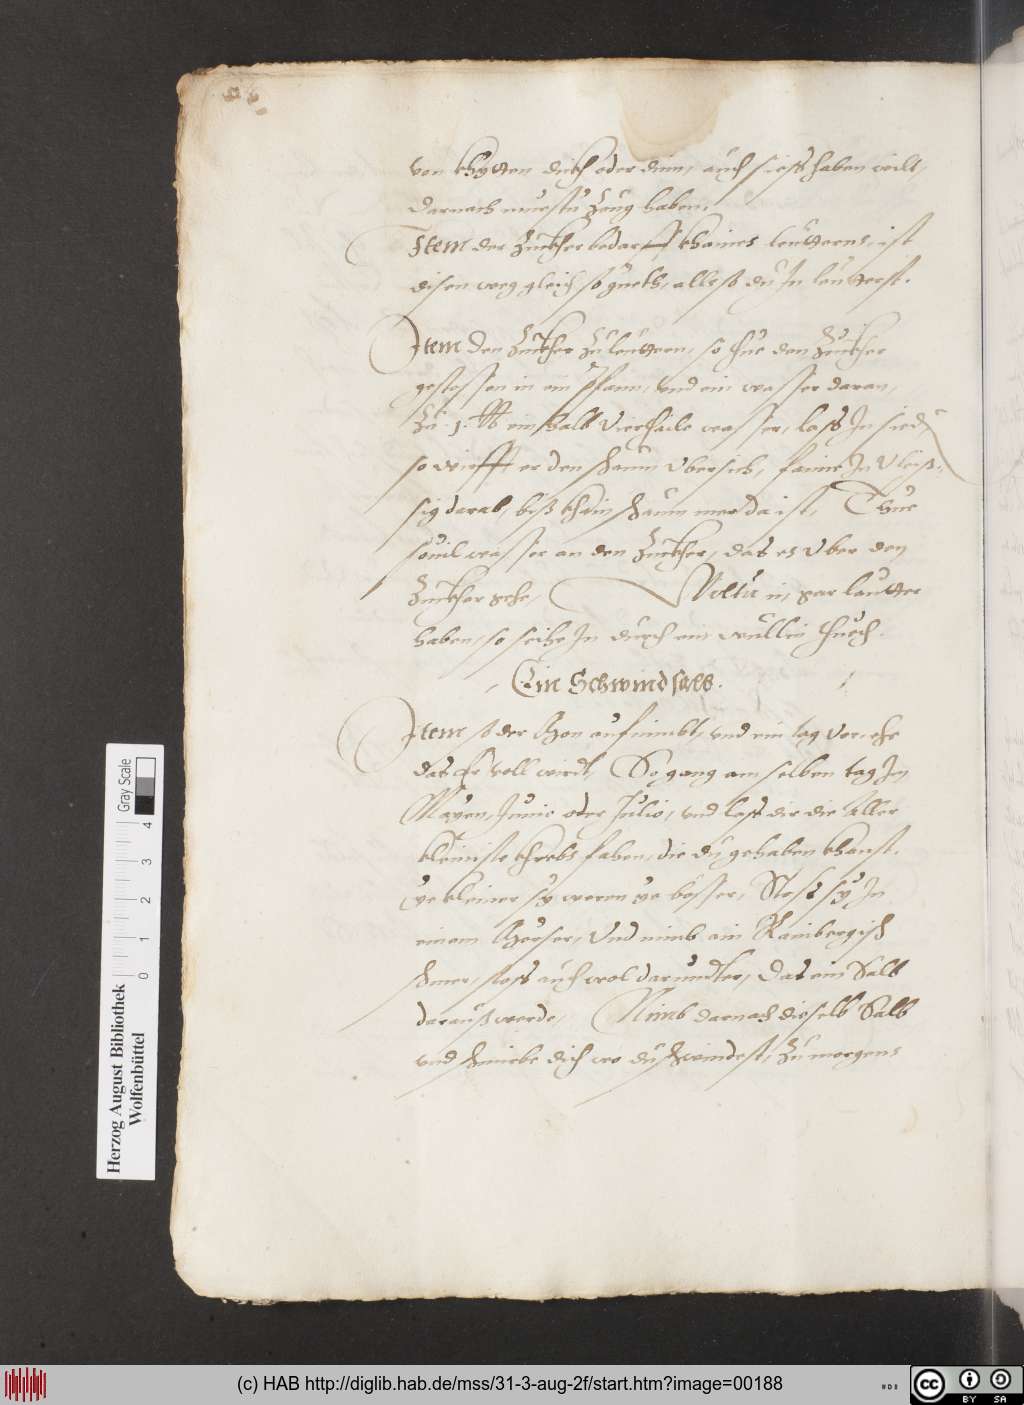 von khytten dickh oder dinn, auch siess haben wilt,
darnach muestu Zeug haben.
Item der Zuckher bedarff khaines leutterns, ist
disen weg gleich so gueth, alls so du In leutterst.
Item den Zuckher Zu leuttern, so thue den Zuckher
gestossen in ein pfann, und ein wasser daran,
Zu .1. ℔ ein halb viertaile wasser, lass In sieden
so wirfft er den schaum ubersich, faime In vleis-
sig darab, biß khain schaum mer da ist, Thue
souil wasser an den Zuckher, das es uber den
Zuckher gehe, Wiltu in gar lautter
haben, so seihe In durch ein wullin thuech.
Ein Schwindsalb.
Item so der Mon aufnimbt, und ein tag vor, ehe
das Er voll wirdt, So gang am selben tag Im
Mayen, Junio oder Julio, und lass dir die Aller
kleiniste khrebs fahen, die du gehaben khanst.
ye kleiner sy weren ye besser, Stoss sy In
einem Morser, Und nimb ain
schmer, stoss auch wol darundter, das ein Salb
darauß werde, Nimb darnach dieselb Salb
und schmiebe dich wo du schwindest, Zu morgens
Herzog August Bibliothek
Wolfenbüttel
0 1 2 3 4
Gray Scale
(c) HAB http://diglib.hab.de/mss/31-3-aug-2f/start.htm?image=00188
cc BY SA